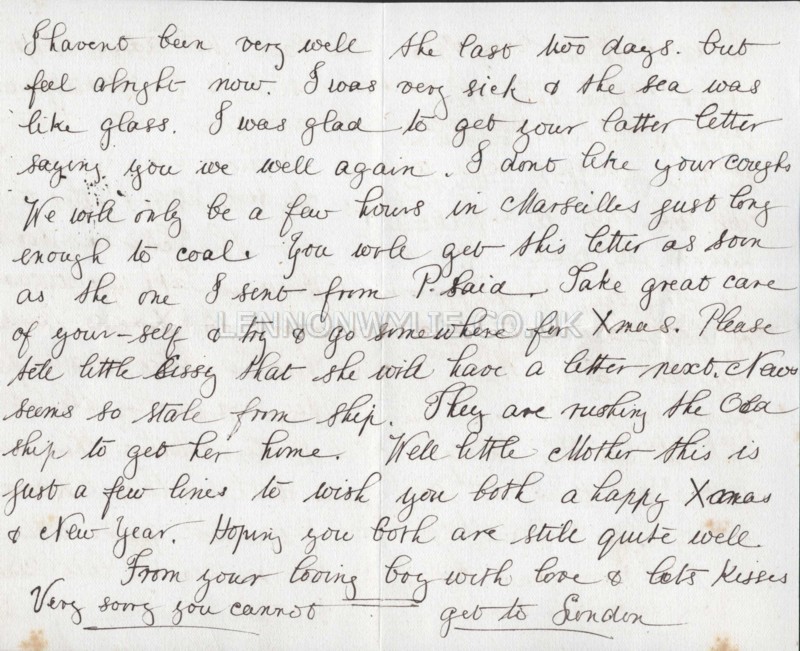 I havent been very well the last two days. but
feel alright now. I was very sick & the sea was
like glass. I was glad to get your latter letter
saying you we well again. I dont like your coughs
We will only be a few hours in Marseilles just long
enough to coal. You will get this letter as soon
as the one I sent from P. Said. Take great care
of your-self & try & go somewhere for Xmas. Please
LENNONWYLIE.CO.UK
tell little Cissy that she will have a letter next. News
seems so stale from ship. They are rushing the
ship to get her home. Well little Mother this is
just a few lines to wish you both a happy Xmas
& New Year. Hoping you both are still quite well.
From your loving boy with love & lots Kisses
Very sorry you cannot get to London